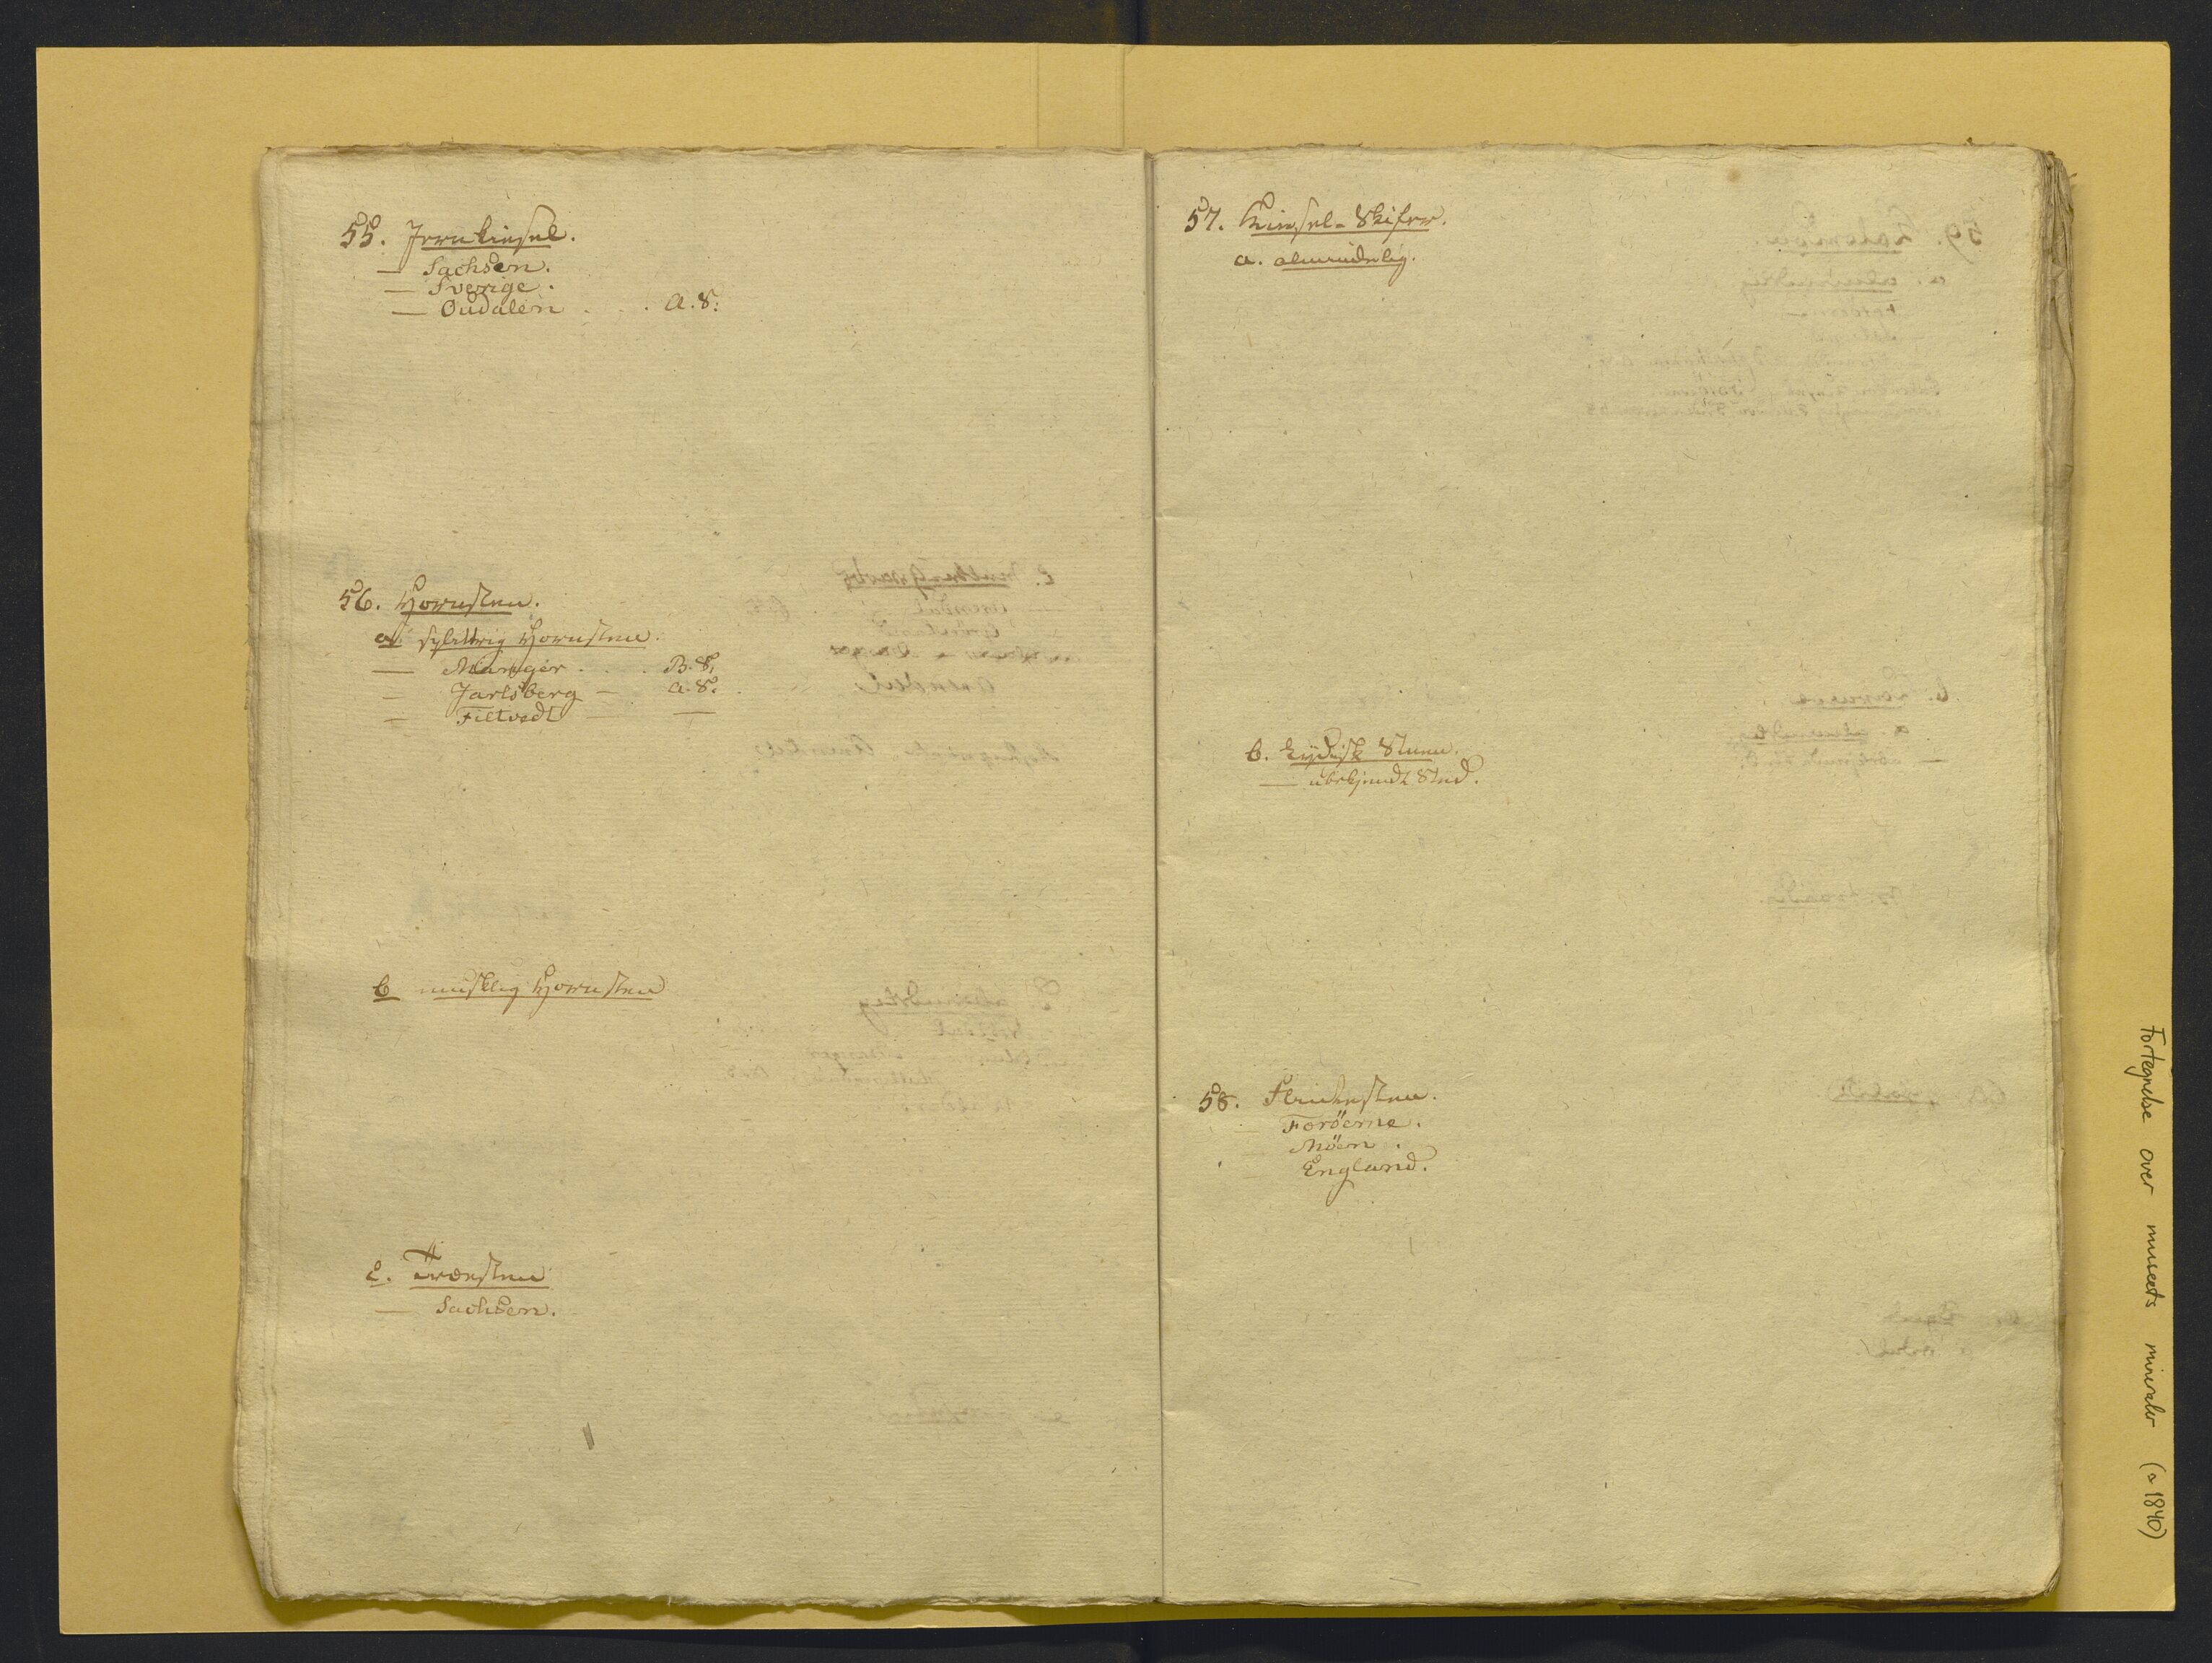 55. Jernkiesel.
— Sachsen.
— Sverige.
— Oudalen . . . A. S.
56. Hornsteen.
a. splittrig Hornsteen.
— Manger . . . B. S.
— Jarlsberg — A. S.
— Filtvedt — —
b muslig Hornsteen
c. Træsteen
— Sachsen.
57. Kiesel-Skifer.
a. almindelig.
b. Lydisk Steen.
— ubekjendt Sted.
58. Flintesteen.
— Foröerne.
— Möen.
— England.
Fortegnelse over museets mineraler (ca 1840)